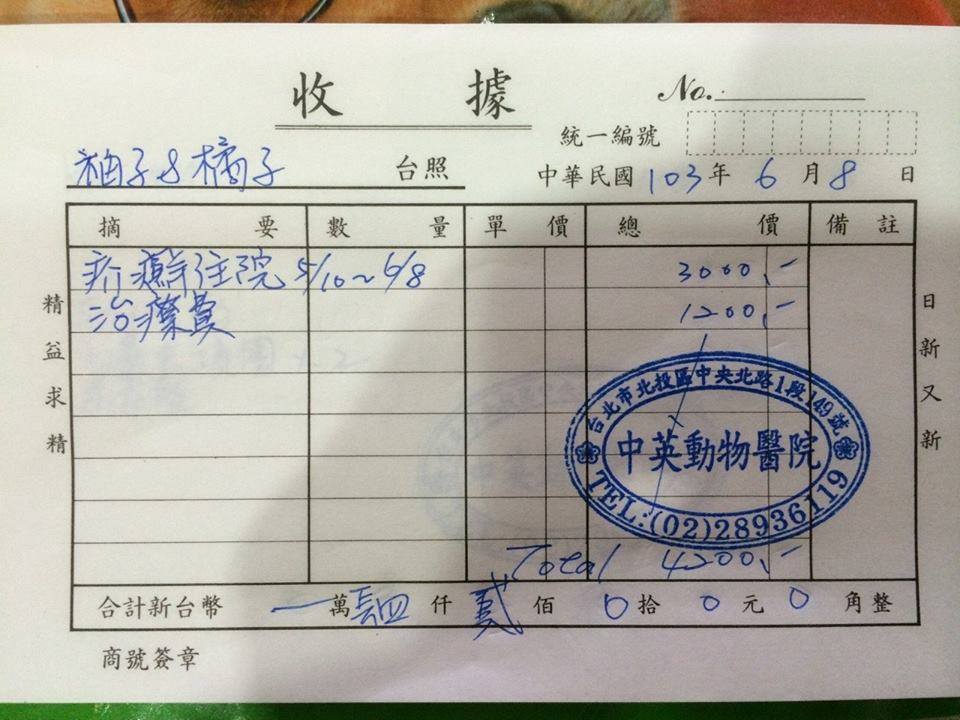 收據
No.
統一編號
柚子&橘子 台照
中華民國103年6月8日
摘要 數量 單價 總價 備註
疥癬住院 5/10~6/8 3000,-
治療費 1200,-
精益求精
日新又新
台北市北投區中央北路1段149號
中英動物醫院
TEL:(02)28936119
Total 4200,-
合計新台幣 一萬肆仟貳佰0拾0元0角整
商號簽章